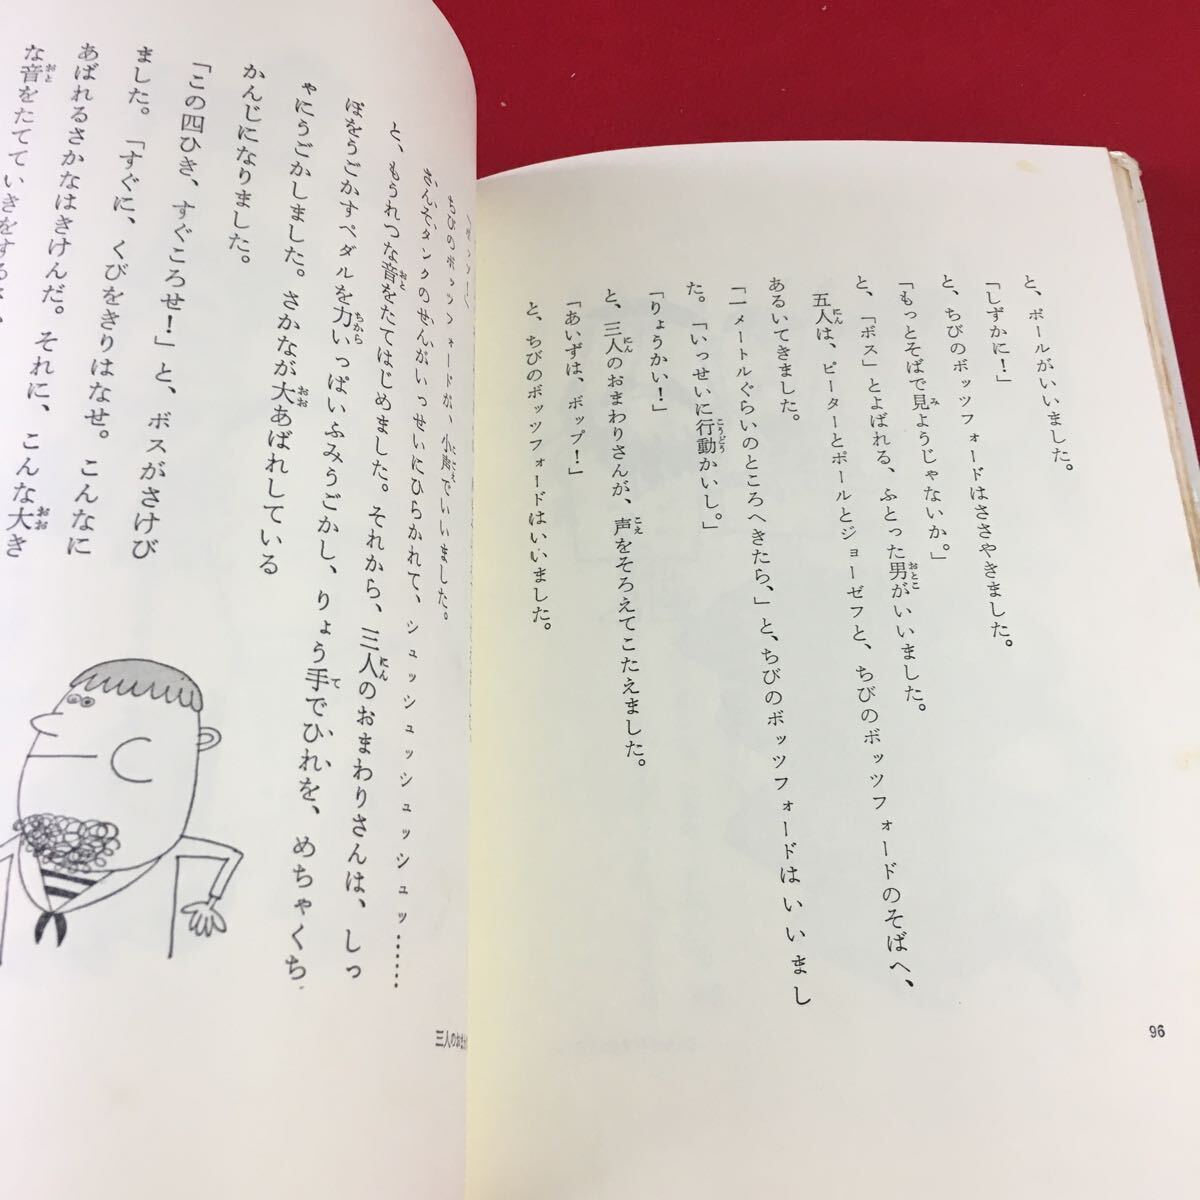 と、ポールがいいました。
「しずかに！」
と、ちびのボッツフォードはささやきました。
「もっとそばで見ようじゃないか。」
と、「ボス」とよばれる、ふとった男がいいました。
五人は、ピーターとポールとジョーゼフと、ちびのボッツフォードのそばへ、
あるいてきました。
「一メートルぐらいのところへきたら、」と、ちびのボッツフォードはいいまし
た。「いっせいに行動かいし。」
「りょうかい！」
と、三人のおまわりさんが、声をそろえてこたえました。
「あいずは、ボップ！」
と、ちびのボッツフォードはいいました。
96
ちびのボッツフォードが、小声でいいました。
さんそタンクのせんがいっせいにひらかれて、シュッシュッシュッシュッ……
と、もうれつな音をたてはじめました。それから、三人のおまわりさんは、しっ
ぽをうごかすペダルを力いっぱいふみうごかし、りょう手でひれを、めちゃくち
ゃにうごかしました。さかなが大あばれしている
かんじになりました。
「この四ひき、すぐころせ！」と、ボスがさけび
ました。「すぐに、くびをきりはなせ。こんなに
あばれるさかなはきけんだ。それに、こんな大き
な音をたてていきをするさ
三人のおま